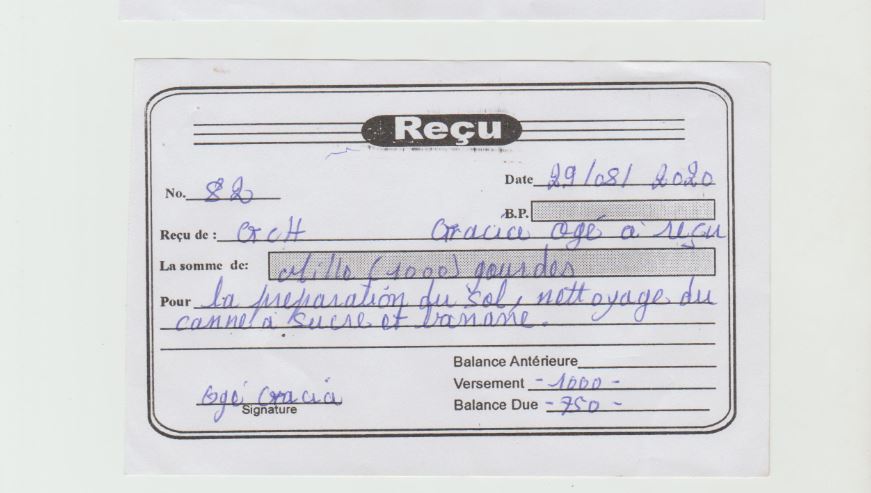 Reçu
No. 82
Date 29/08/2020
B.P.
Reçu de : GRCH Gracia Ogé a reçu
La somme de: Mille (1000) gourdes
Pour la preparation du sol, nettoyage du
canne à sucre et banane.
Balance Antérieure
Versement - 1000 -
Balance Due - 750 -
Ogé Gracia
Signature